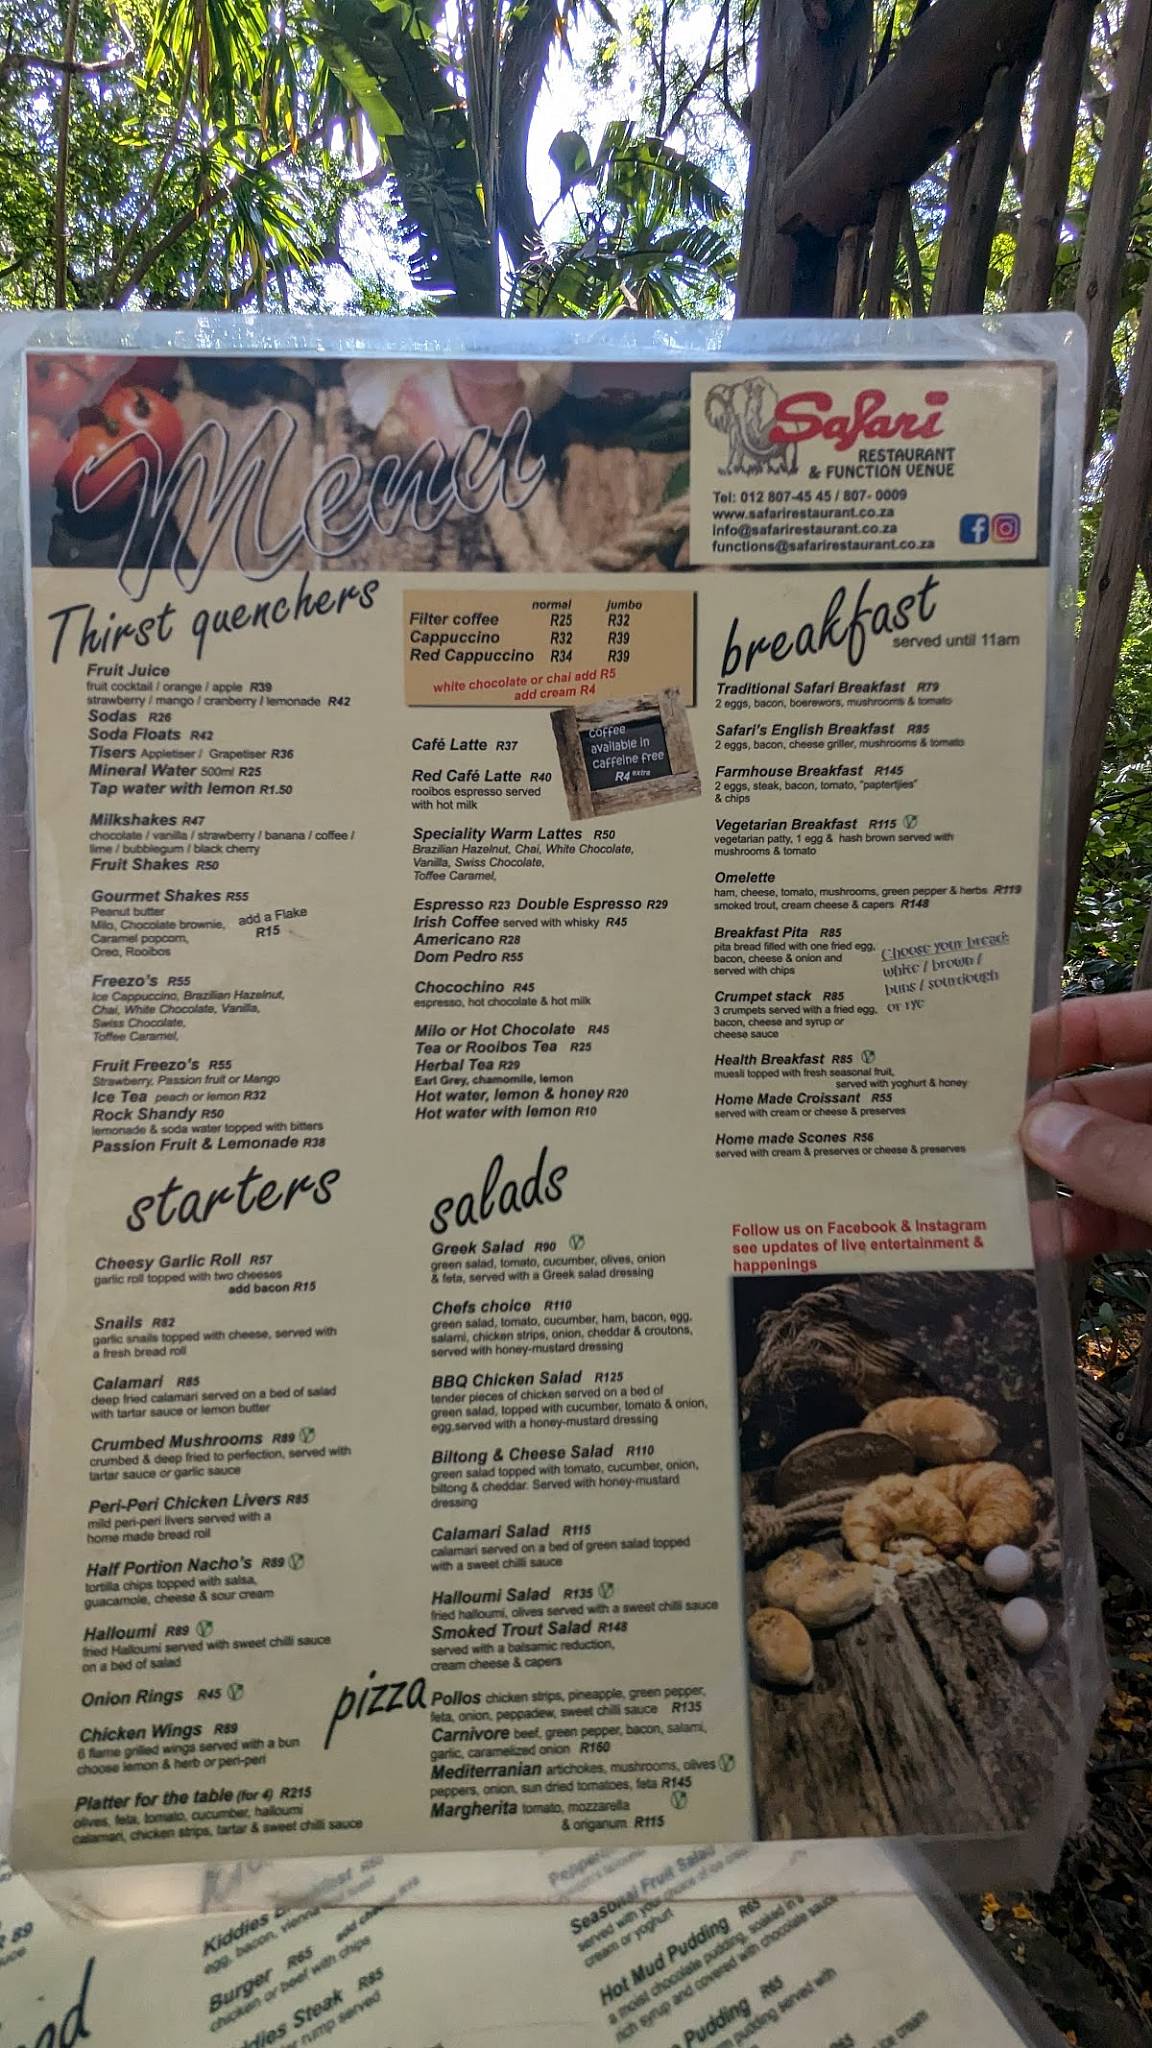 Menu
Safari
RESTAURANT
& FUNCTION VENUE
Tel: 012 807-45 45 / 807- 0009
www.safarirestaurant.co.za
info@safarirestaurant.co.za
functions@safarirestaurant.co.za
Thirst quenchers
Fruit Juice
fruit cocktail / orange / apple R39
strawberry / mango / cranberry / lemonade R42
Sodas R26
Soda Floats R42
Tisers Appletiser / Grapetiser R36
Mineral Water 500ml R25
Tap water with lemon R1.50
Milkshakes R47
chocolate / vanilla / strawberry / banana / coffee /
lime / bubblegum / black cherry
Fruit Shakes R50
Gourmet Shakes R55
Peanut butter
Milo, Chocolate brownie,
Caramel popcorn,
Oreo, Rooibos
add a Flake
R15
Freezo's R55
Ice Cappuccino, Brazilian Hazelnut,
Chai, White Chocolate, Vanilla,
Swiss Chocolate,
Toffee Caramel,
Fruit Freezo's R55
Strawberry, Passion fruit or Mango
Ice Tea peach or lemon R32
Rock Shandy R50
lemonade & soda water topped with bitters
Passion Fruit & Lemonade R38
normal jumbo
Filter coffee R25 R32
Cappuccino R32 R39
Red Cappuccino R34 R39
white chocolate or chai add R5
add cream R4
Café Latte R37
coffee
available in
caffeine free
R4 extra
Red Café Latte R40
rooibos espresso served
with hot milk
Speciality Warm Lattes R50
Brazilian Hazelnut, Chai, White Chocolate,
Vanilla, Swiss Chocolate,
Toffee Caramel,
Espresso R23 Double Espresso R29
Irish Coffee served with whisky R45
Americano R28
Dom Pedro R55
Chocochino R45
espresso, hot chocolate & hot milk
Milo or Hot Chocolate R45
Tea or Rooibos Tea R25
Herbal Tea R29
Earl Grey, chamomile, lemon
Hot water, lemon & honey R20
Hot water with lemon R10
breakfast
served until 11am
Traditional Safari Breakfast R79
2 eggs, bacon, boerewors, mushrooms & tomato
Safari's English Breakfast R85
2 eggs, bacon, cheese griller, mushrooms & tomato
Farmhouse Breakfast R145
2 eggs, steak, bacon, tomato, "paptertjies"
& chips
Vegetarian Breakfast R115
vegetarian patty, 1 egg & hash brown served with
mushrooms & tomato
Omelette
ham, cheese, tomato, mushrooms, green pepper & herbs R119
smoked trout, cream cheese & capers R148
Breakfast Pita R85
pita bread filled with one fried egg,
bacon, cheese & onion and
served with chips
Choose your bread:
white / brown /
buns / sourdough
or rye
Crumpet stack R85
3 crumpets served with a fried egg,
bacon, cheese and syrup or
cheese sauce
Health Breakfast R85
muesli topped with fresh seasonal fruit,
served with yoghurt & honey
Home Made Croissant R55
served with cream or cheese & preserves
Home made Scones R56
served with cream & preserves or cheese & preserves
starters
Cheesy Garlic Roll R57
garlic roll topped with two cheeses
add bacon R15
Snails R82
garlic snails topped with cheese, served with
a fresh bread roll
Calamari R85
deep fried calamari served on a bed of salad
with tartar sauce or lemon butter
Crumbed Mushrooms R89
crumbed & deep fried to perfection, served with
tartar sauce or garlic sauce
Peri-Peri Chicken Livers R85
mild peri-peri livers served with a
home made bread roll
Half Portion Nacho's R89
tortilla chips topped with salsa,
guacamole, cheese & sour cream
Halloumi R89
fried Halloumi served with sweet chilli sauce
on a bed of salad
Onion Rings R45
Chicken Wings R89
6 flame grilled wings served with a bun
choose lemon & herb or peri-peri
Platter for the table (for 4) R215
olives, feta, tomato, cucumber, halloumi
calamari, chicken strips, tartar & sweet chilli sauce
salads
Greek Salad R90
green salad, tomato, cucumber, olives, onion
& feta, served with a Greek salad dressing
Chefs choice R110
green salad, tomato, cucumber, ham, bacon, egg,
salami, chicken strips, onion, cheddar & croutons,
served with honey-mustard dressing
BBQ Chicken Salad R125
tender pieces of chicken served on a bed of
green salad, topped with cucumber, tomato & onion,
egg,served with a honey-mustard dressing
Biltong & Cheese Salad R110
green salad topped with tomato, cucumber, onion,
biltong & cheddar. Served with honey-mustard
dressing
Calamari Salad R115
calamari served on a bed of green salad topped
with a sweet chilli sauce
Halloumi Salad R135
fried halloumi, olives served with a sweet chilli sauce
Smoked Trout Salad R148
served with a balsamic reduction,
cream cheese & capers
pizza
Pollos chicken strips, pineapple, green pepper,
feta, onion, peppadew, sweet chilli sauce R135
Carnivore beef, green pepper, bacon, salami,
garlic, caramelized onion R160
Mediterranian artichokes, mushrooms, olives
peppers, onion, sun dried tomatoes, feta R145
Margherita tomato, mozzarella
& origanum R115
Follow us on Facebook & Instagram
see updates of live entertainment &
happenings
R 89
Kiddies
egg, bacon, vienna
Burger R65
chicken or beef with chips
Steak R85
rump served
Seasonal Fruit Salad
served with your choice of ice cream
cream or yoghurt
Hot Mud Pudding R65
a moist chocolate pudding, soaked in a
rich syrup and covered with chocolate sauce
Pudding R65
pudding served with
ice cream